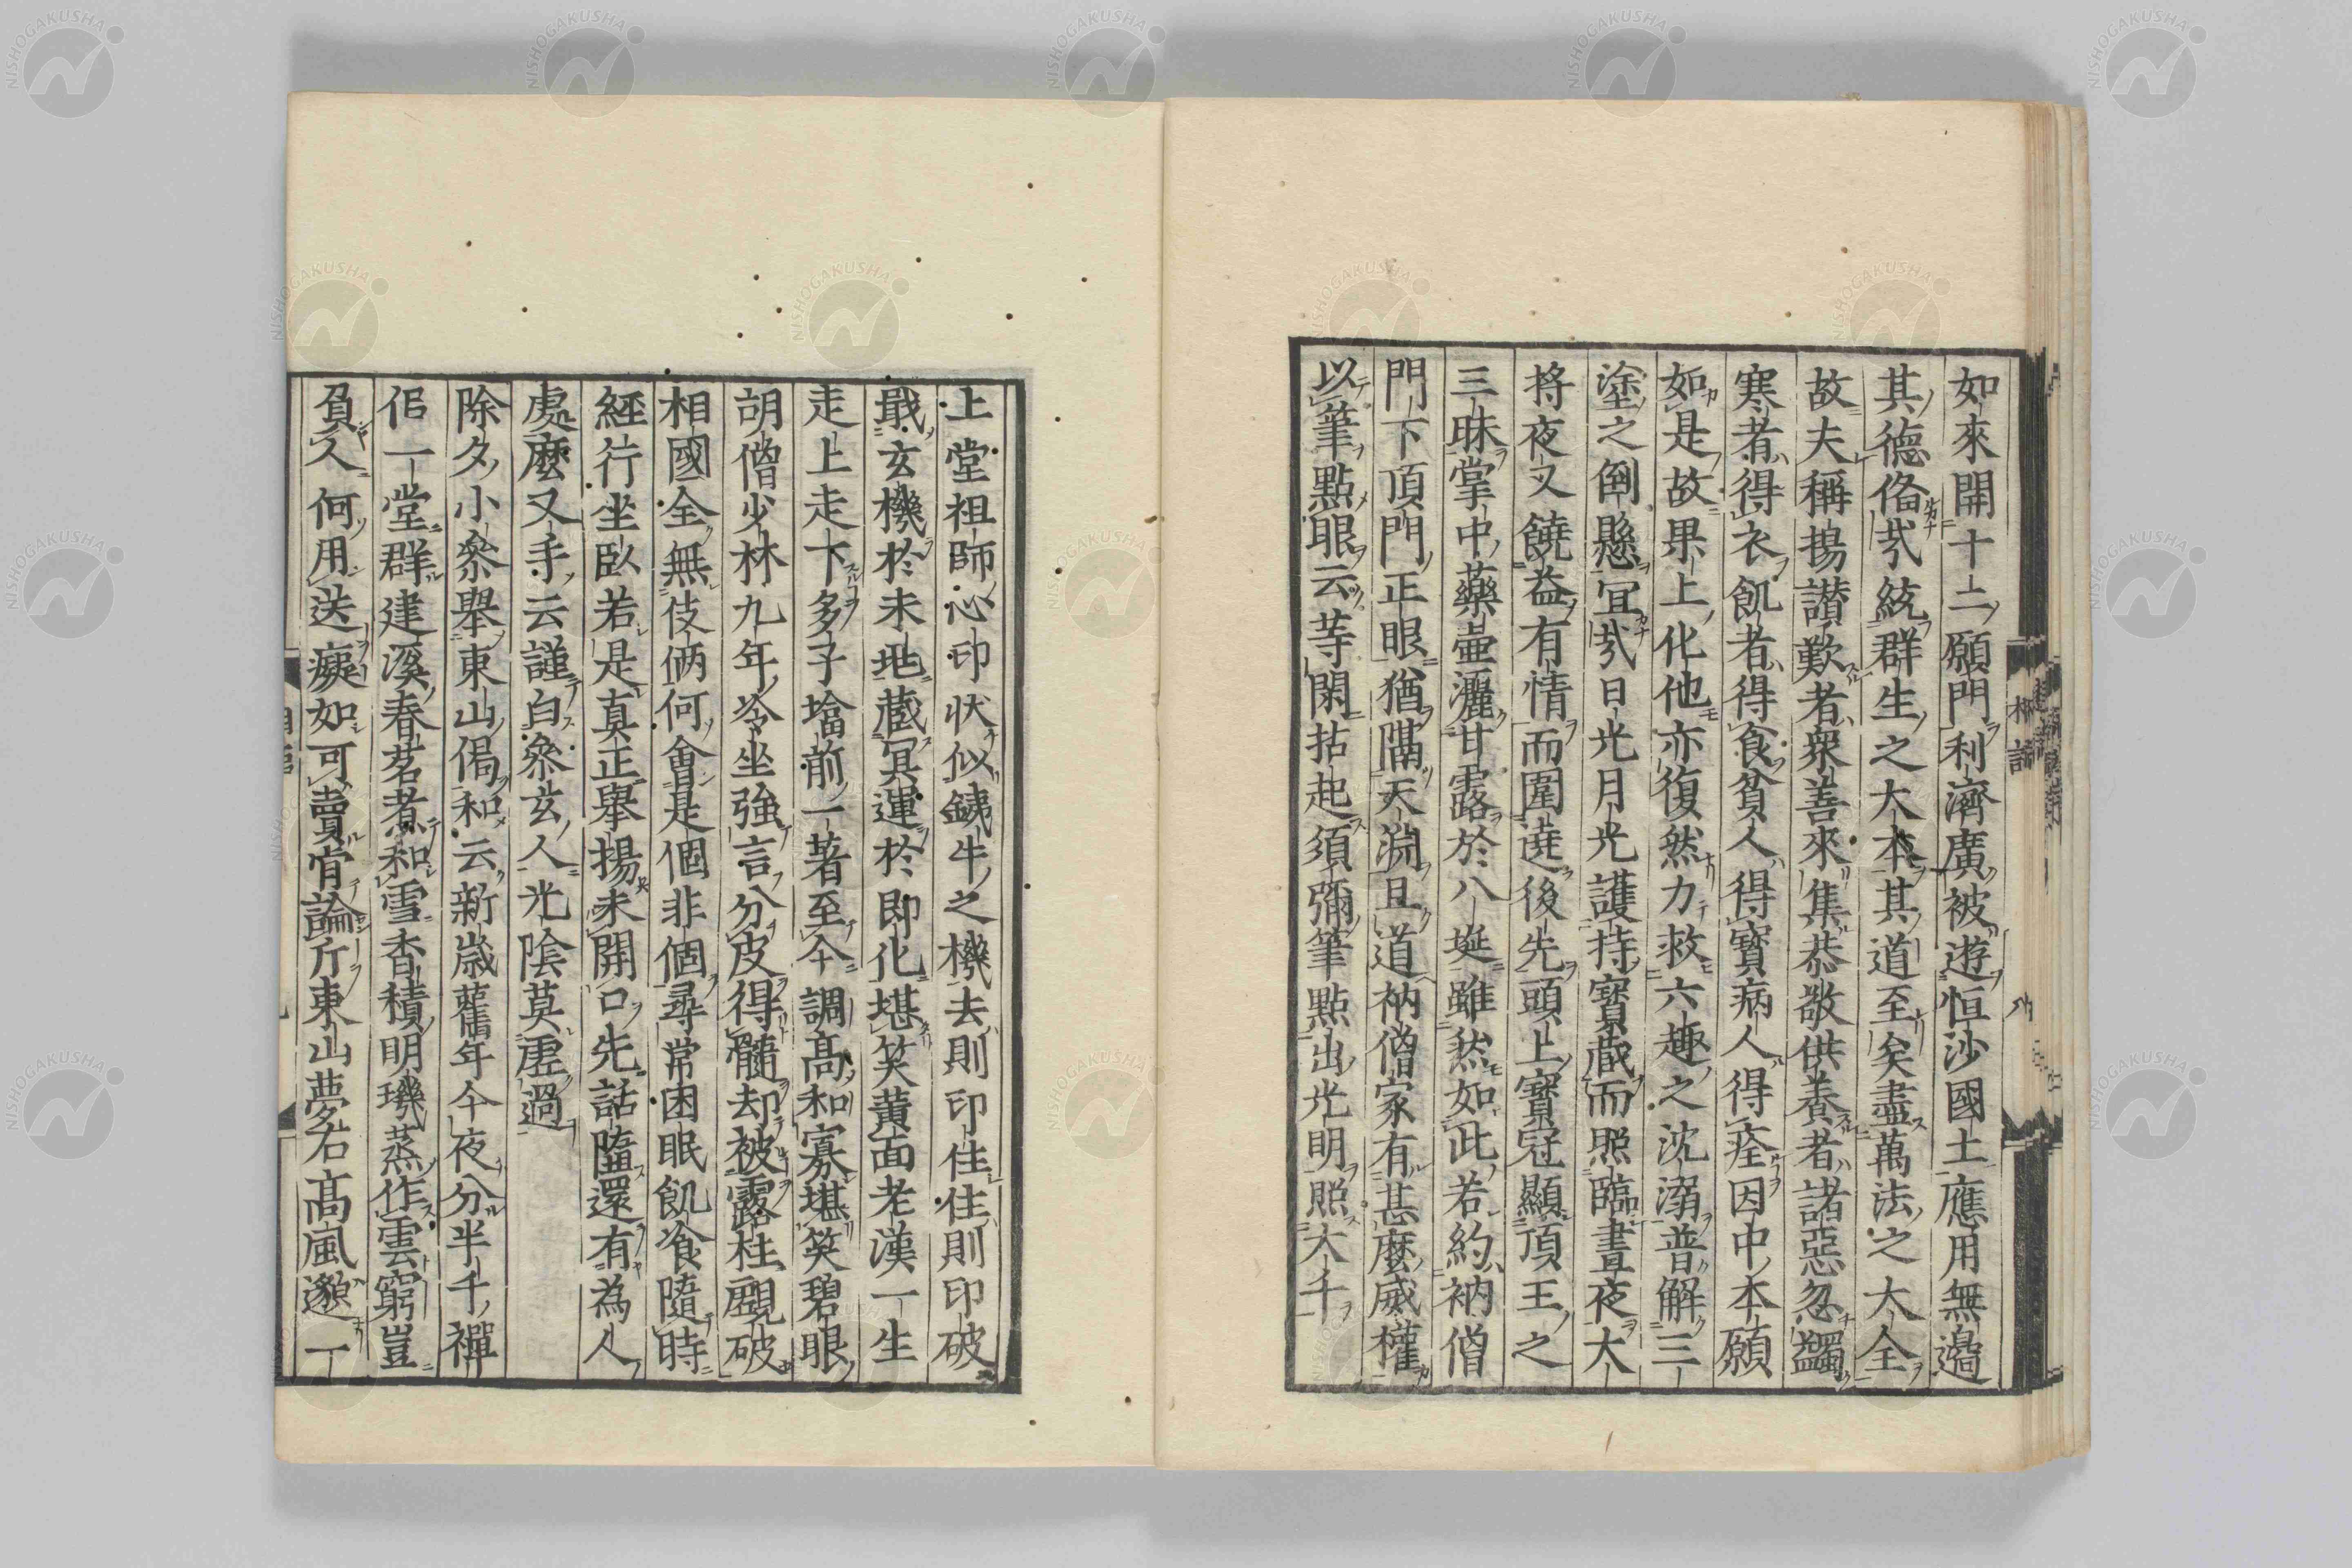 如來開十二願門利濟廣被遊恒沙國土應用無邊
其德偹㢤統群生之大本其道至矣盡萬法之大全
故夫稱揚讃歎者衆善來集恭敬供養者諸惡忽蠲
寒者得衣飢者得食貧人得寶病人得痊因中本願
如是故果上化他亦復然力救六趣之沈溺普解三
塗之倒懸冝㢤日光月光護持寶藏而照臨晝夜大
將夜叉饒益有情而圍遶後先頭上寶冠顯頂王之
三昧掌中藥壷灑甘露於八埏雖然如此若約衲僧
門下頂門正眼猶隔天淵且道衲僧家有甚麼威權
以筆點眼云等閑拈起須彌筆點出光明照大千
上堂祖師心印状似銕牛之機去則印住住則印破
戢玄機於未地藏冥運於即化堪笑黄面老漢一生
走上走下多子塔前一著至今調髙和寡堪笑碧眼
胡僧少林九年冷坐強言分皮得髓却被露柱覷破
相國全無伎倆何會是個非個尋常困眠飢飡隨時
經行坐臥若是真正舉揚未開口先話墮還有為人
處麼又手云謹白叅玄人光陰莫虚過
除夕小叅舉東山偈和云新歳舊年今夜分半千禪
侶一堂群建溪春茗煮和雪香積明璣蒸作雲窮豈
負久何用送癡如可賣肻論斤東山夢右髙風邈一